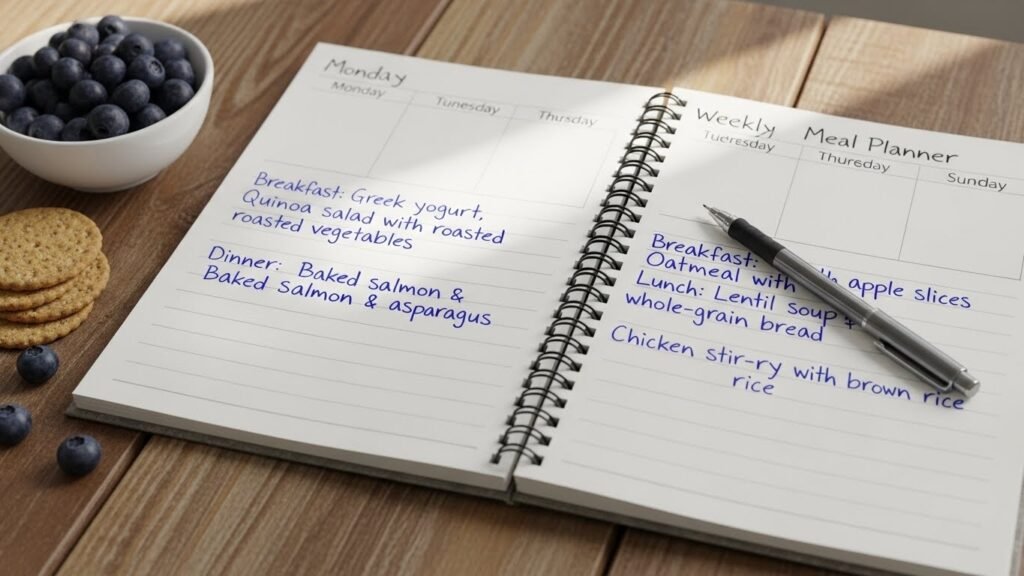 Monday
Monday Tunesday Thusday
Breakfast: Greek yogurt,
Quinoa salad with roasted
roasted vegetables
Dinner: Baked salmon &
Baked salmon & asparagus
Weekly Meal Planner
Tuersday Thursday Sunday
Breakfast: apple slices
Oatmeal with
Lunch: Lentil soup +
whole-grain bread
Chicken stir-ry with brown rice
rice